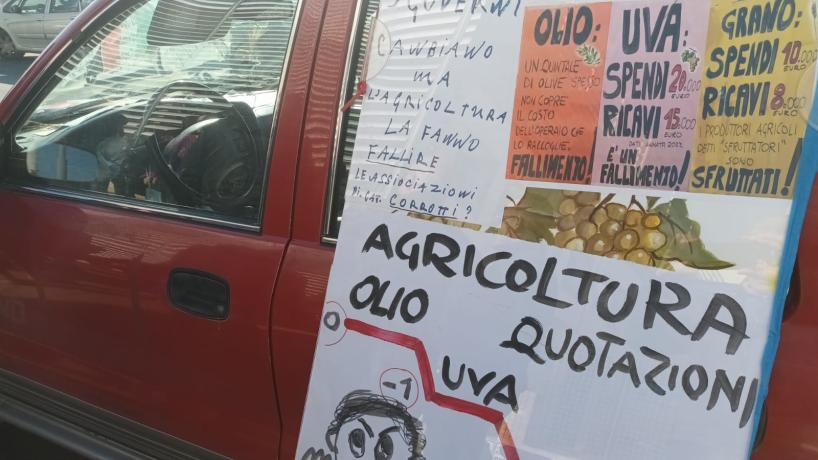 GOVERNI
CAMBIANO
MA
L'AGRICOLTURA
LA FANNO
FALLIRE
LE ASSIOCIAZIONI
DI CAT. CORROTTI?
OLIO:
UN QUINTALE
DI OLIVE SPESSO
NON COPRE
IL COSTO
DELL'OPERAIO CHE
LO RACCOGLIE.
FALLIMENTO!
UVA:
SPENDI 20.000
EURO
RICAVI 15.000
EURO
DATI ANNATA 2022
E' UN
FALLIMENTO!
GRANO:
SPENDI 10.000
EURO
RICAVI 8.000
EURO
I PRODUTTORI AGRICOLI
DETTI "SFRUTTATORI"
SONO
SFRUTTATI!
AGRICOLTURA
OLIO
QUOTAZIONI
0
UVA
-1